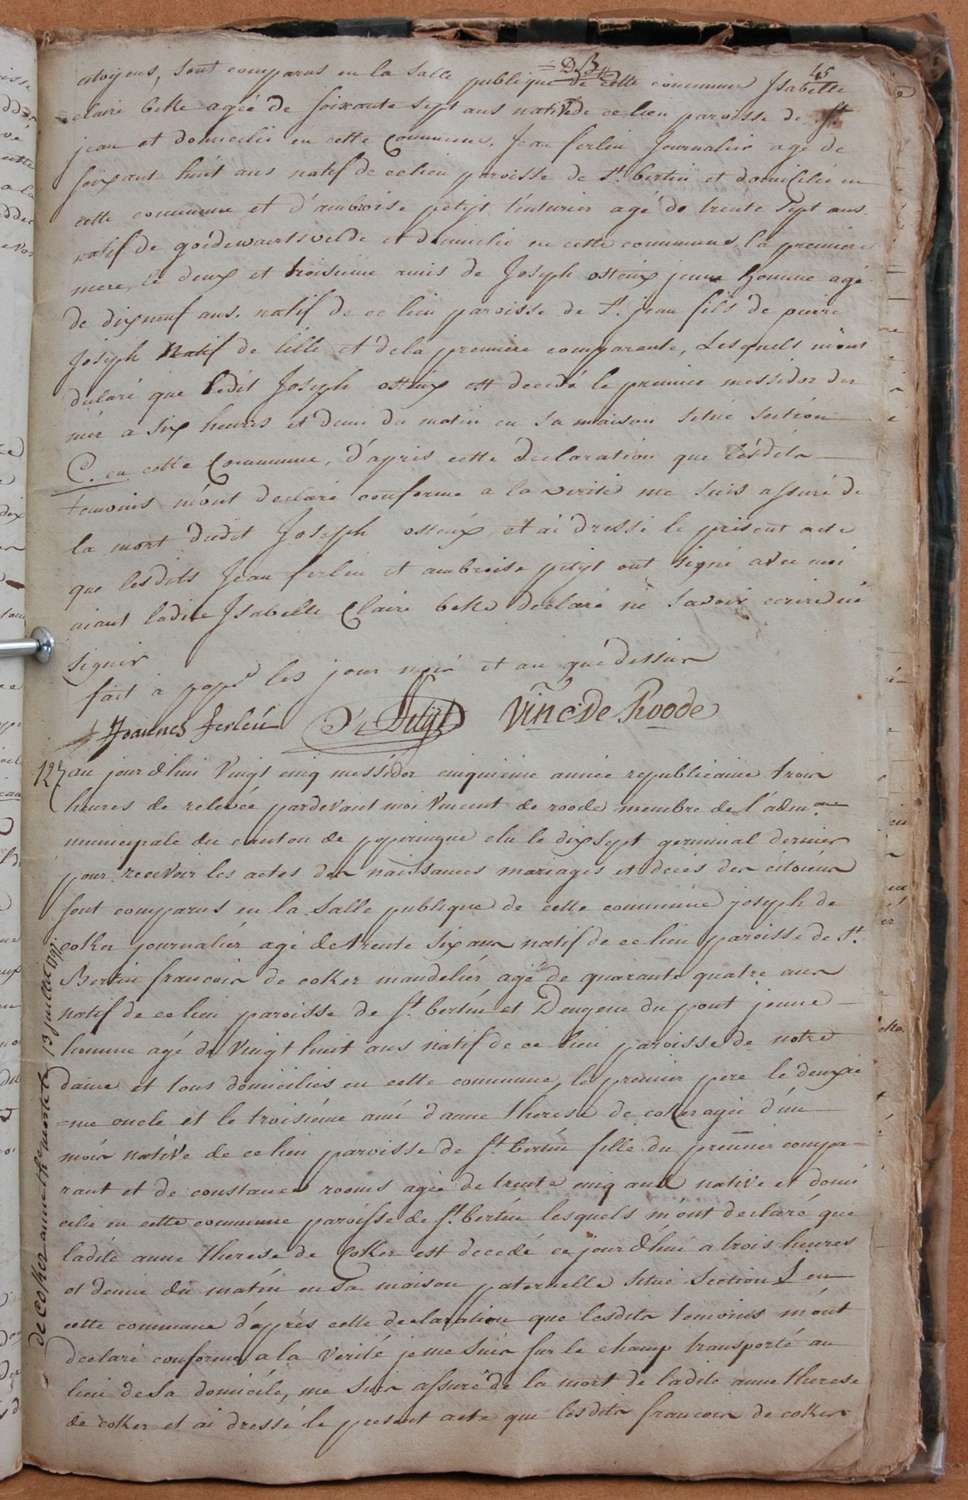 45
citoyens, sont comparus en la salle publique de cette commune Isabelle
claire beke agée de soixante sept ans native de ce lieu paroisse de St
jean et domicilié en cette commune, Jean ferlin Journalier agé de
soixant huit ans natif de ce lieu paroisse de St bertin et domicilié en
cette commune et d'ambroise petyt teinturier agé de trente sept ans
natif de goidewaertsvelde et domicilié en cette commune la premiere
mere, le deux et troisieme amis de Joseph osteux jeune homme agé
de dixneuf ans natif de ce lieu paroisse de St jean fils de pierre
Joseph natif de lille et de la premiere comparante, Lesquels m'ont
declaré que ledit Joseph osteux est decedé le premier messidor der
nier a six heures et demi du matin en sa maison situé section
C. en cette Commune, d'apris cette declaration que lesdits
temoins m'ont declaré conforme a la verité me suis assuré de
la mort dudit Joseph osteux, et ai dressé le present acte
que lesdits Jean ferlin et ambroise petyt ont signé avec moi
aiant ladite Isabelle Claire beke declaré ne savoir ecrire ni
signer
fait à pope les jour mois et an que dessus
Joannes ferlein D'A Petyt Vinc: De Roode
127 au jourdhui Vingt cinq messidor cinquieme année republicaine trois
heures de relevée pardevant moi Vincent de roode membre de l'adm
municipale du canton de poperingue elu le dixsept germinal dernier
pour recevoir les actes des naissances mariages et decès des citoiens
sont comparus en la salle publique de cette commune joseph de
coker journalier agé de trente six ans natif de ce lieu paroisse de St
Bertin francois de coker mandelier, agé de quarante quatre ans
natif de ce lieu paroisse de St bertin et Deugene du pont jeune
homme agé de Vingt huit ans natif de ce lieu paroisse de notre
dame et tous domiciliés en cette commune, le premier pere le deuxie
me oncle et le troisiéme ami d'anne therese de coker agée d'un
mois native de ce lieu paroisse de St bertin fille du premier compa
rant et de constance rooms agée de trente cinq ans native et domi
cilié en cette commune paroisse de St bertin lesquels m'ont declaré que
ladite anne therese de Coker est decedé ce jourdhui a trois heures
et demie du matin en sa maison paternelle situé section L en
cette commune d'après cette declaration que lesdits temoins m'ont
declaré conforme a la verité je me suis sur le champ transporté au
lieu de sa domicile, me suis assuré de la mort de ladite anne therese
de coker et ai dressé le present acte que lesdits francois de coker
de Coker anne the morte le 13 juillet 1797.